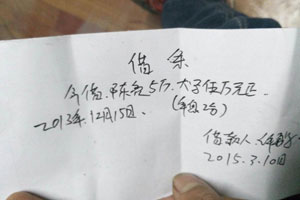 借条
今借 5万.大字伍万元正.
2013年.12月15日. (年息2分)
借款人
2015.3.10日